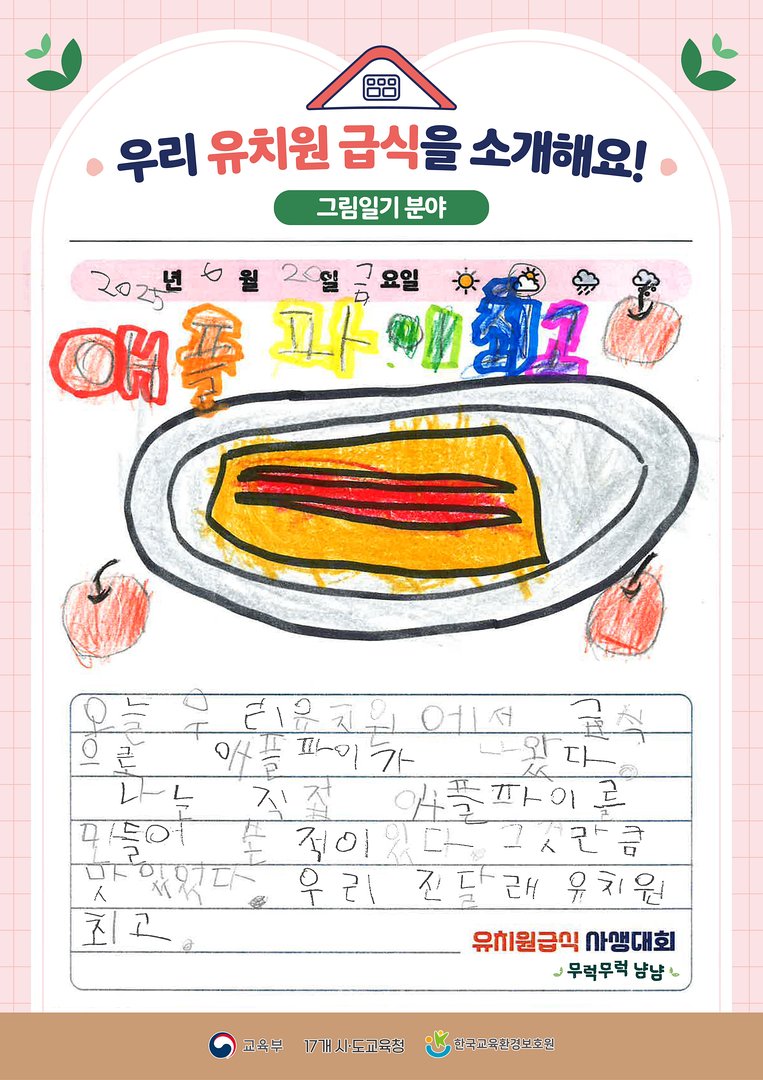 우리 유치원 급식을 소개해요!
그림일기 분야
2025년 6월 20일 금요일
애플파이 최고
오늘 우리유치원에서 급식
으로 애플파이가 나왔다.
나는 직접 애플파이를
만들어 본 적이 있다. 그것만큼
맛있었다. 우리 진달래 유치원
최고.
유치원급식 사생대회
무럭무럭 냠냠
교육부 17개 시·도교육청 한국교육환경보호원